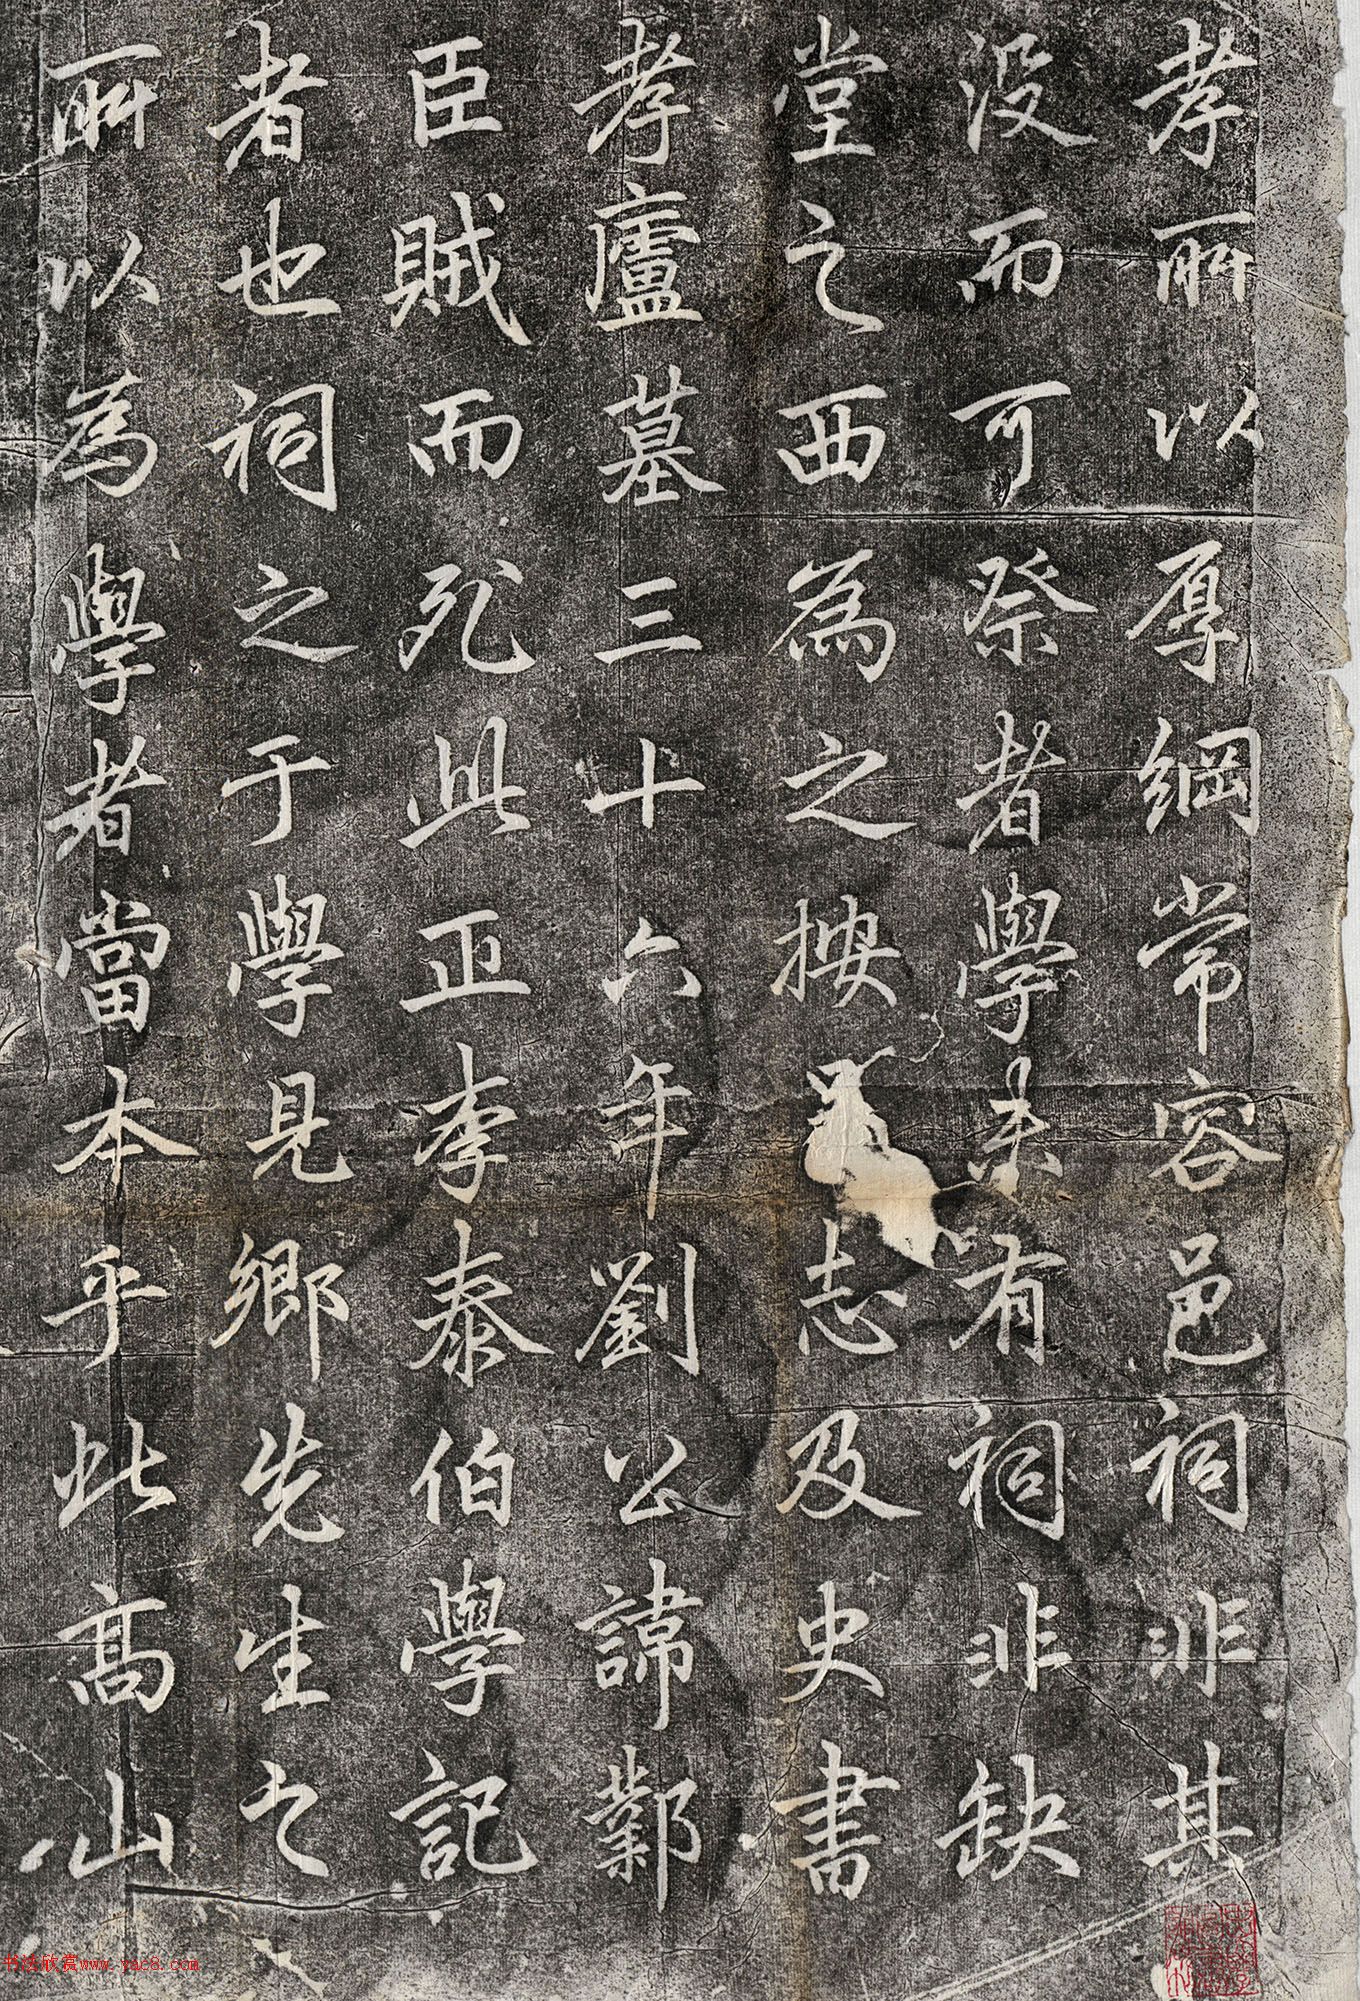 孝所以厚綱常容邑祠非其
沒而可祭者學未有祠非缺
堂之西為之按志及史書
孝廬墓三十六年劉公諱鄴
臣賊而死此正李泰伯學記
者也祠之于學見鄉先生之
所以為學者當本乎此高山
书法欣赏www.yac8.com